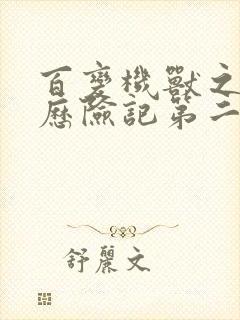 百變機獸之
歷險記第二
舒麗文